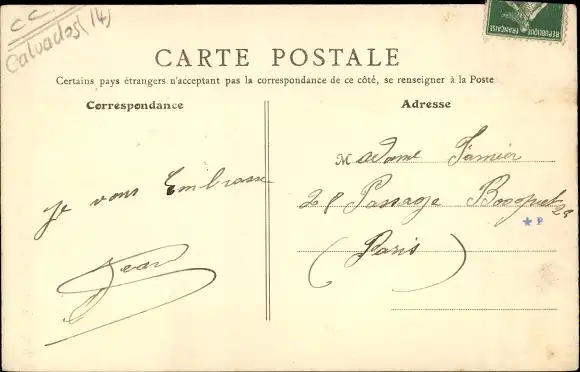 CC
Calvados (14)
RÉPUBLIQUE FRANÇAISE
CARTE POSTALE
Certains pays étrangers n'acceptant pas la correspondance de ce côté, se renseigner à la Poste
Correspondance
Adresse
Madame
28 Passage Bosquet 28
(Paris)
Je vous Embrasse
Jean